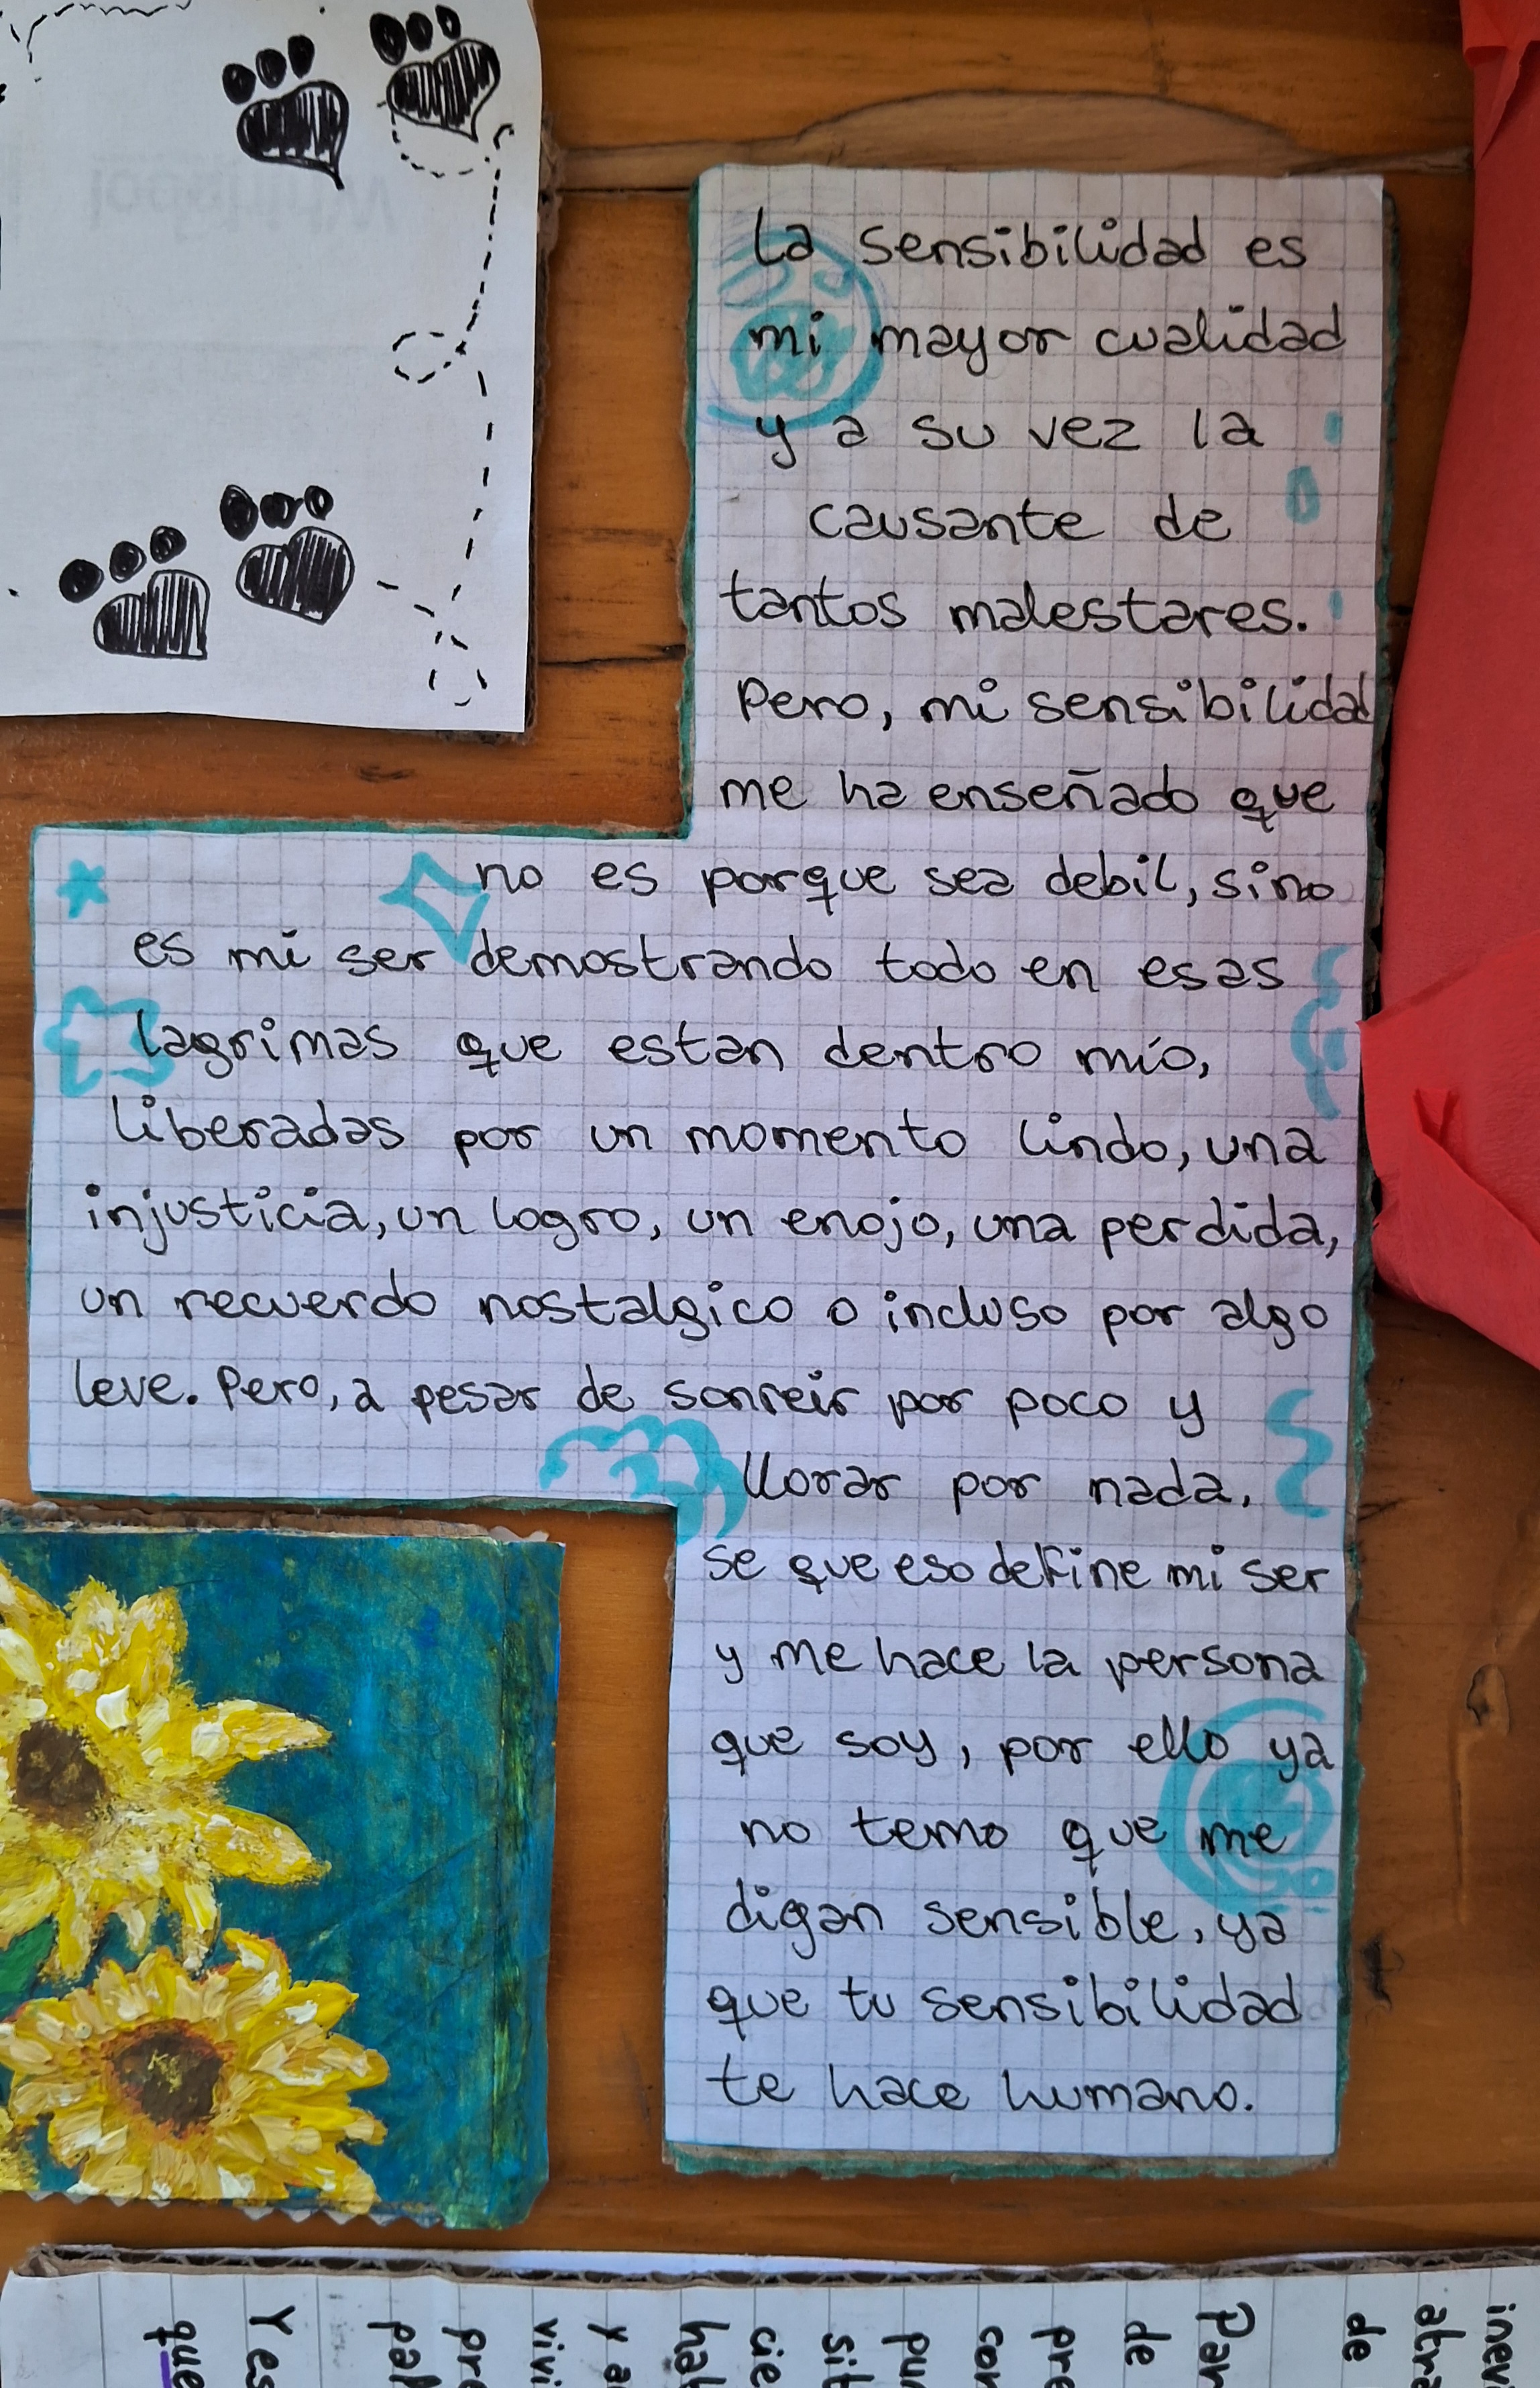 La sensibilidad es
mi mayor cualidad
y a su vez la
causante de
tantos malestares.
Pero, mi sensibilidad
me ha enseñado que
no es porque sea debil, sino
es mi ser demostrando todo en esas
lagrimas que estan dentro mío,
liberadas por un momento lindo, una
injusticia, un logro, un enojo, una perdida,
un recuerdo nostalgico o incluso por algo
leve. Pero, a pesar de sonreir por poco y
llorar por nada,
se que eso define mi ser
y me hace la persona
que soy, por ello ya
no temo que me
digan sensible, ya
que tu sensibilidad
te hace humano.
de
de
que